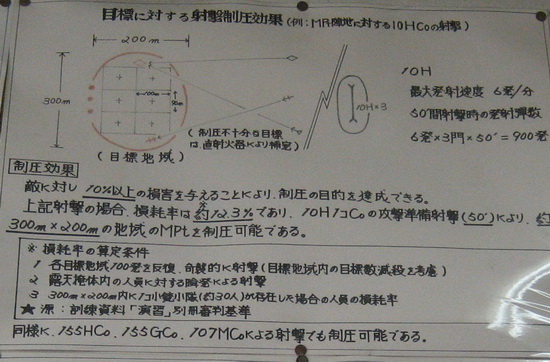 目標に対する射撃制圧効果(例:MR陣地に対する10HCoの射撃)
200m
300m
100m
10H
10H×3
最大発射速度 6発/分
50'間射撃時の発射弾数
6発×3門×50'=900発
(制圧不十分な目標
は直射火器により補完)
(目標地域)
制圧効果
敵に対し10%以上の損害を与えることにより、制圧の目的を達成できる。
上記射撃の場合、損耗率は約12.3%であり、10H1コCoの攻撃準備射撃(50')により、約
300m×200mの地域のMPLを制圧可能である。
※ 損耗率の算定条件
1 各目標地域100発を反復、奇襲的に射撃(目標地域内の目標数減殺を考慮)
2 露天掩体内の人員に対する瞬発による射撃
3 300m×200m内に1コ小銃小隊(約30人)が存在した場合の人員の損耗率
★ 源:訓練資料「演習」別冊審判基準
同様に、155HCo、155GCo、107MCoによる射撃でも制圧可能である。